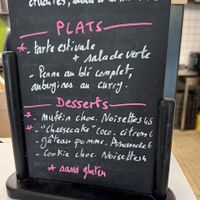 crudités,
PLATS
* - tarte estivale
+ salade verte
- Penne au blé complet,
aubergines au curry.
Desserts
* - muffin choc. Noisettes
* - "cheesecake" coco. citron
- gâteau pomme.
- cookie choc. Noisettes
* sans gluten